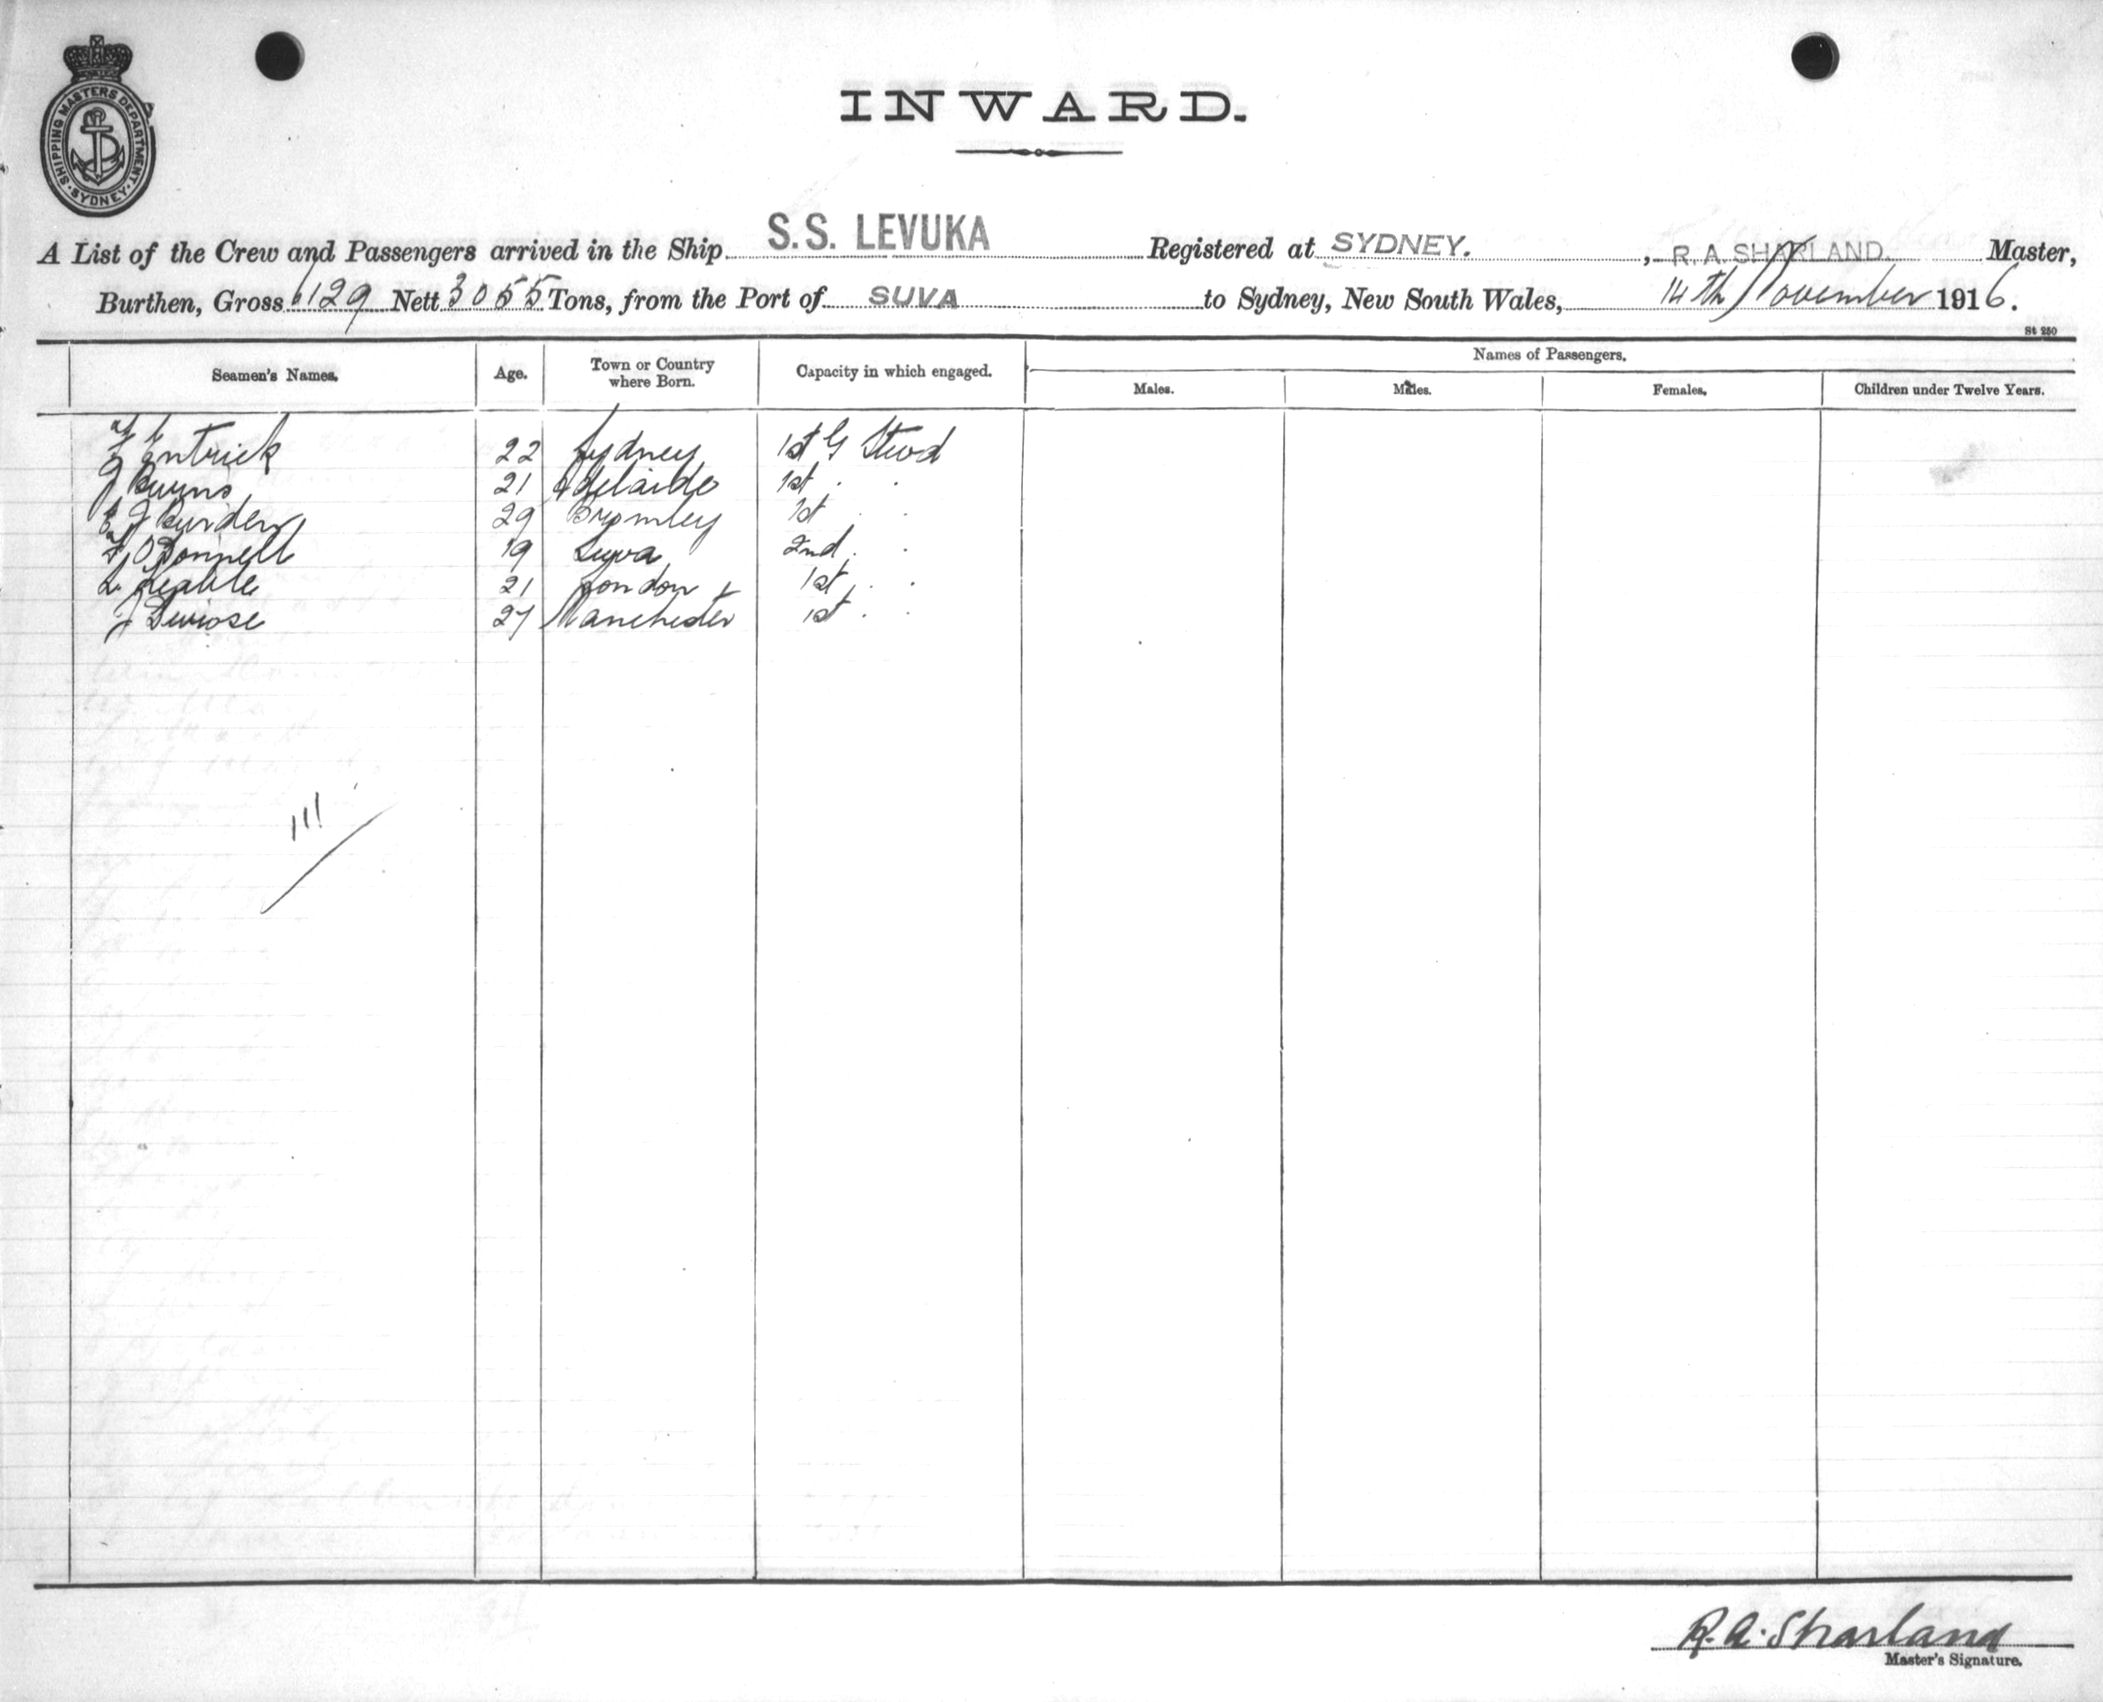 SHIPPING MASTERS DEPARTMENT. SYDNEY.
INWARD.
A List of the Crew and Passengers arrived in the Ship S.S. LEVUKA Registered at SYDNEY. , R. A. SHARLAND. Master,
Burthen, Gross 6129 Nett 3055 Tons, from the Port of SUVA to Sydney, New South Wales, 14th November 1916.
St 250
Seamen's Names. Age. Town or Country where Born. Capacity in which engaged. Names of Passengers.
Males. Males. Females. Children under Twelve Years.
Entrick 22 Sydney 1st G Stwd
J Burns 21 Adelaide 1st . .
E J Burden 29 Bromley 1st . .
O'Donnell 19 Suva 2nd . .
21 London 1st . .
J 27 Manchester 1st . .
111
R. A. Sharland
Master's Signature.